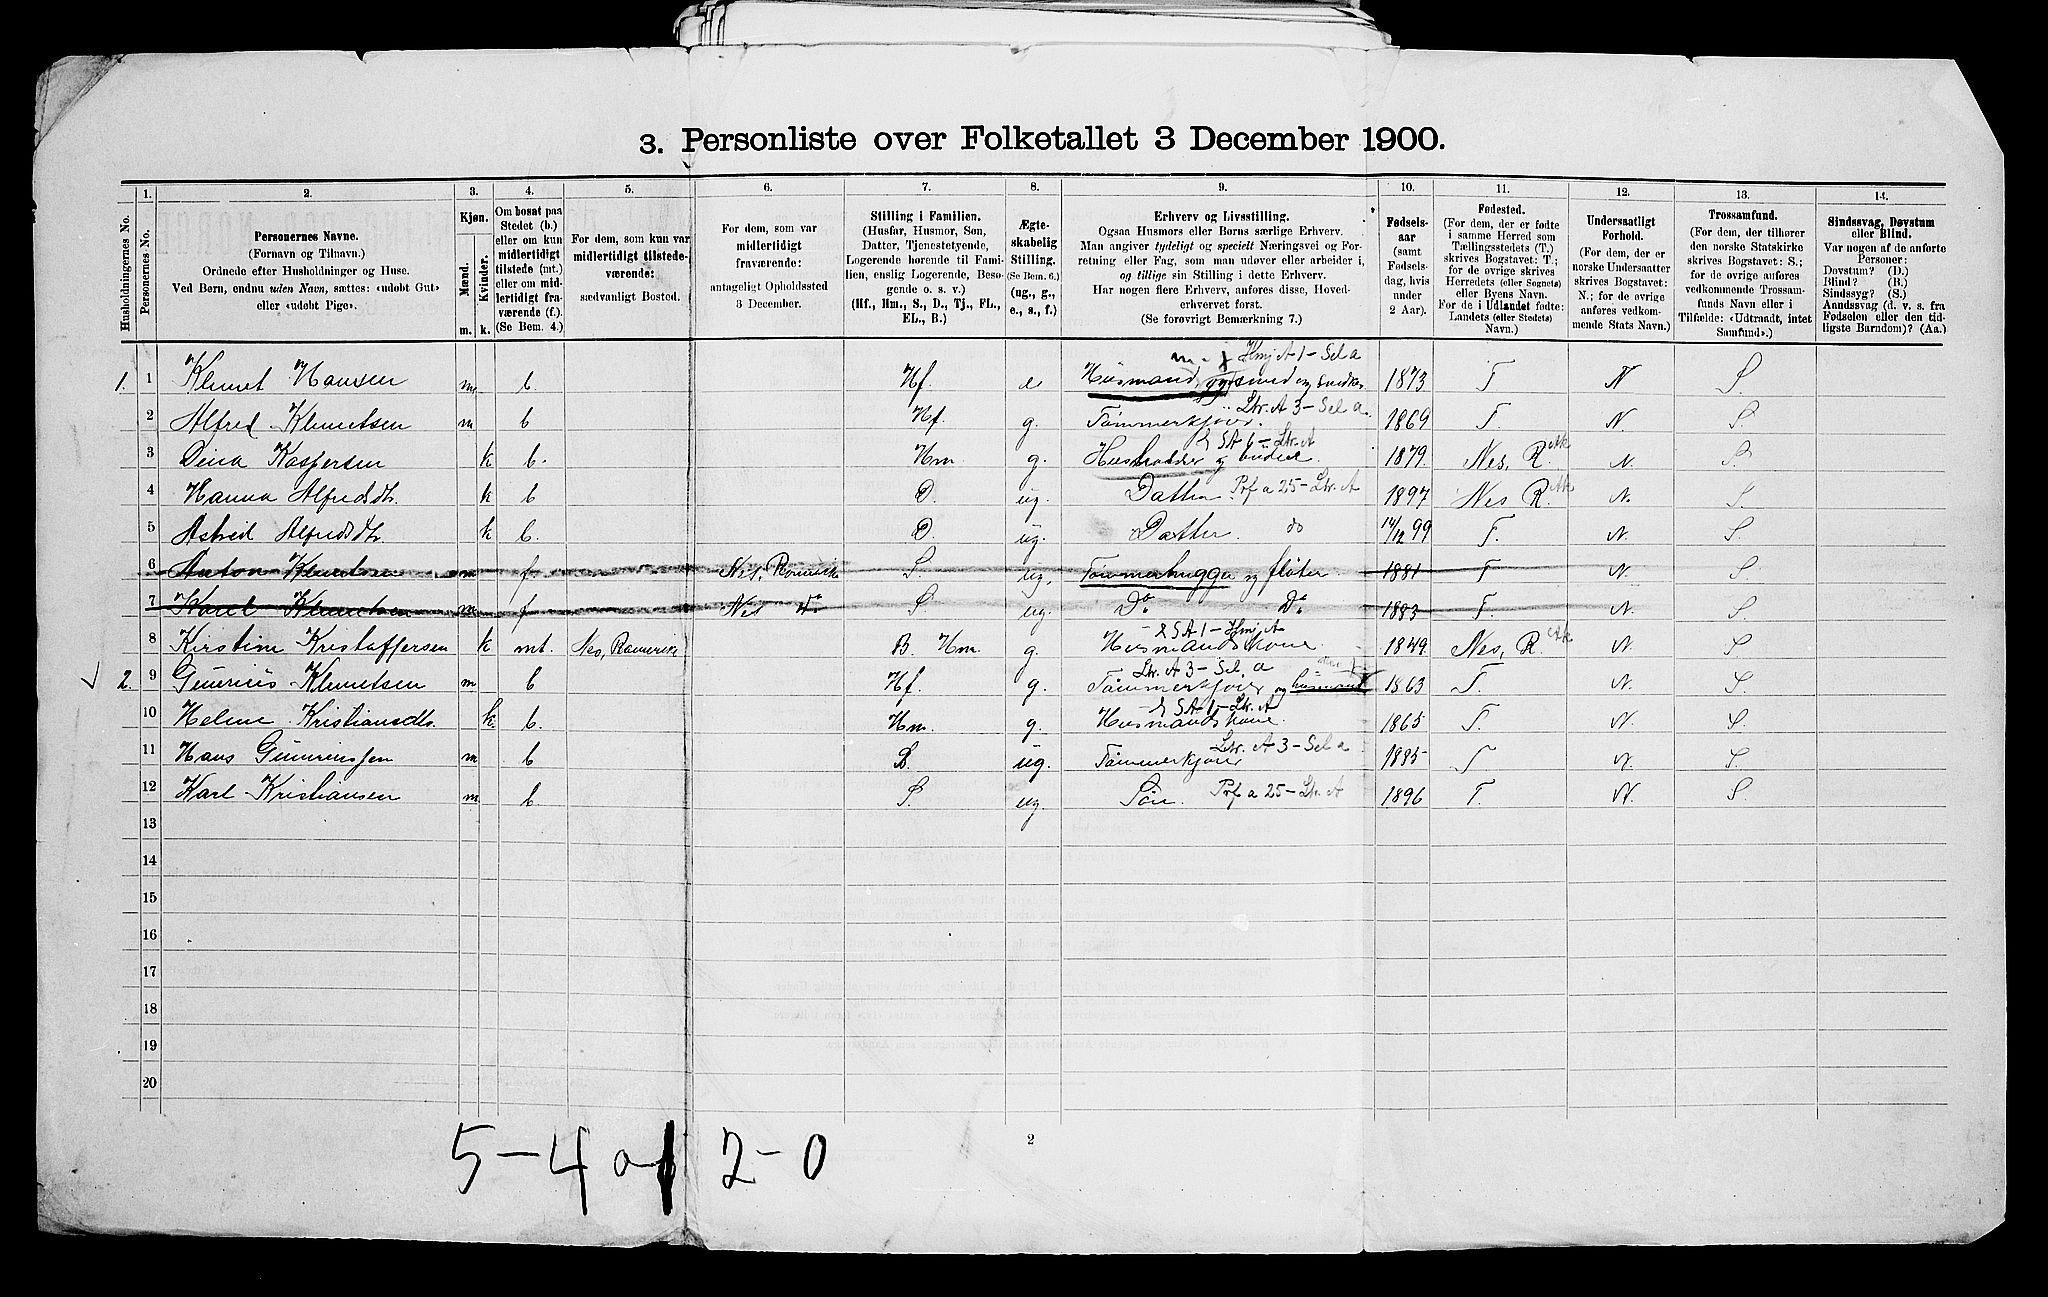 3. Personliste over Folketallet 3 December 1900.
Husholdningernes No.
1. Personernes No.
2. Personernes Navne. (Fornavn og Tilnavn.) Ordnede efter Husholdninger og Huse. Ved Børn, endnu uden Navn, sættes: «udøbt Gut» eller «udøbt Pige».
3. Kjøn. Mænd. m. Kvinder. k.
4. Om bosat paa Stedet (b.) eller om kun midlertidigt tilstede (mt.) eller om midlertidigt fraværende (f.) (Se Bem. 4.)
5. For dem, som kun var midlertidigt tilstedeværende: sædvanligt Bosted.
6. For dem, som var midlertidigt fraværende: antageligt Opholdssted 3 December.
7. Stilling i Familien. (Husfar, Husmor, Søn, Datter, Tjenestetyende, Logerende hørende til Familien, enslig Logerende, Besøgende o. s. v.) (Hf., Hm., S., D., Tj., FL., EL., B.)
8. Ægteskabelig Stilling. (Se Bem. 6.) (ug., g., e., s., f.)
9. Erhverv og Livsstilling. Ogsaa Husmors eller Børns særlige Erhverv. Man angiver tydeligt og specielt Næringsvei og Forretning eller Fag, som man udøver eller arbeider i, og tillige sin Stilling i dette Erhverv. Har nogen flere Erhverv, anføres disse, Hovederhvervet først. (Se forøvrigt Bemærkning 7.)
10. Fødselsaar (samt Fødselsdag, hvis under 2 Aar).
11. Fødested. (For dem, der er fødte i samme Herred som Tællingsstedets (T.) skrives Bogstavet: T.; for de øvrige skrives Herredets (eller Sognets) eller Byens Navn. For de i Udlandet fødte: Landets (eller Stedets) Navn.)
12. Undersaatligt Forhold. (For dem, der er norske Undersaatter skrives Bogstavet: N.; for de øvrige anføres vedkommende Stats Navn.)
13. Trossamfund. (For dem, der tilhører den norske Statskirke skrives Bogstavet: S.; for de øvrige anføres vedkommende Trossamfunds Navn eller i Tilfælde: «Udtraadt, intet Samfund».)
14. Sindssvag, Døvstum eller Blind. Var nogen af de anførte Personer: Døvstum? (D.) Blind? (B.) Sindssyg? (S.) Aandssvag (d. v. s. fra Fødselen eller den tidligste Barndom)? (Aa.)
1. 1 Klemet Hansen m. b. Hf. e Husmand og smed og snedker Hmj A 1 – Sel a 1873 T N S.
2 Alfred Klemetsen m b Hf. g. Tømmerkjører. Ltr. A 3 – Sel a. 1869 T. N. S.
3 Dina Kaspersen k b. Hm g. Husholder og budeie. & SA 6 – Ltr. A 1879. Nes, R. Ak N. S.
4 Hanna Alfredsdtr. k b D. ug. Datter Prf a 25 – Ltr. A 1897 Nes R. Ak N. S.
5 Astrid Alfredsdtr. k b. D. ug. Datter. do 14/12 99 T. N. S.
6 Anton Klemetsen m f. Nes, Romerike S. ug. Tømmerhugger og fløter 1881 T N. S.
7 Karel Klemetsen m. f Nes do S. ug. Do Do 1883 T. N. S.
8 Kirstine Kristoffersen k mt. Nes, Romerike B. Hm. g. Husmandskone. & SA 1 – Hmj A 1849 Nes, R. Ak N. S.
2. 9 Gunerius Klemetsen m b Hf. g. Tømmerkjører og husmand Ltr. A 3 – Sel. a 1863 T. N. S.
10 Helene Kristiansdtr. k. b. Hm. g. Husmandskone. & SA 1 – Ltr. A 1865 T. N. S.
11 Hans Guneriussen m b L. ug. Tømmerkjører Ltr. A 3 – Sel a 1885 T N. S.
12 Karl Kristiansen m b S. ug Søn. Prf a 25 – Ltr. A 1896 T. N. S.
13
14
15
16
17
18
19
20
2
5 – 4 2 – 0